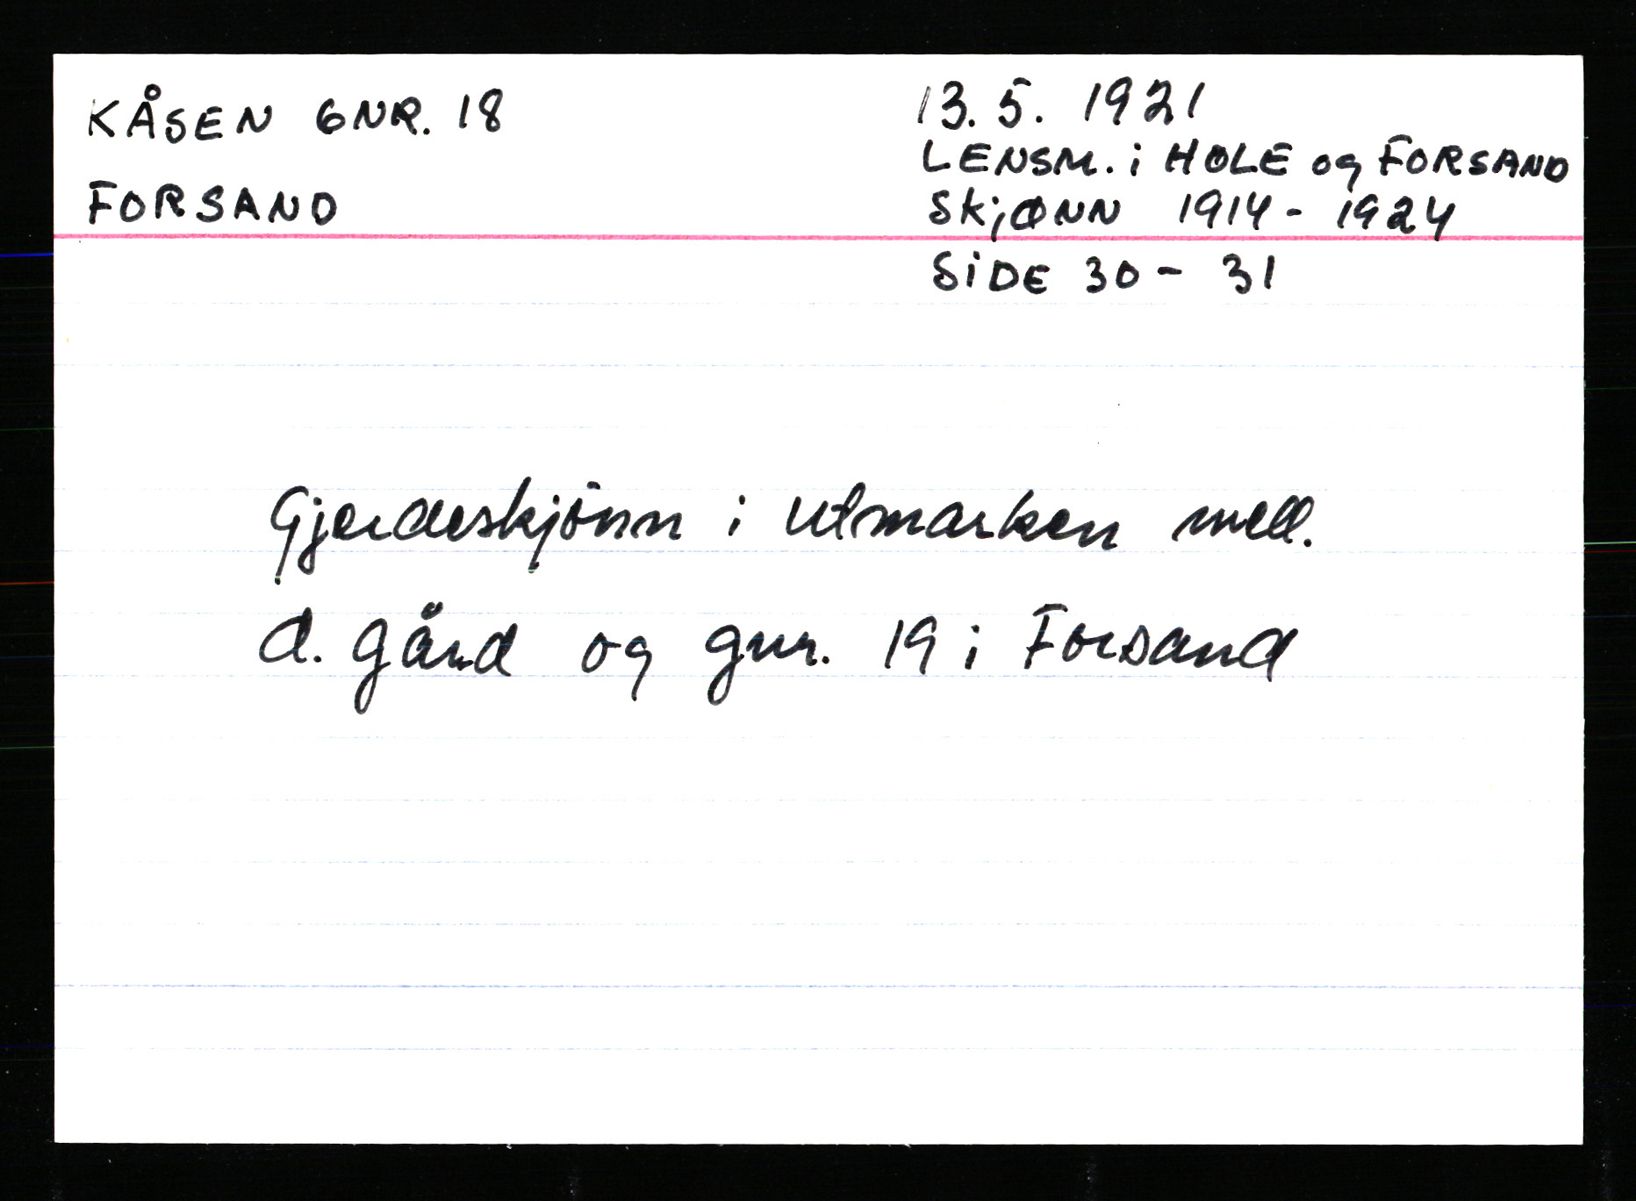 KÅSEN GNR. 18
FORSAND
13. 5. 1921
LENSM. i HOLE og FORSAND
SKJØNN 1914 - 1924
SIDE 30 - 31
Gjerdeskjönn i utmarken mell.
d. gård og gnr. 19 i Forsand